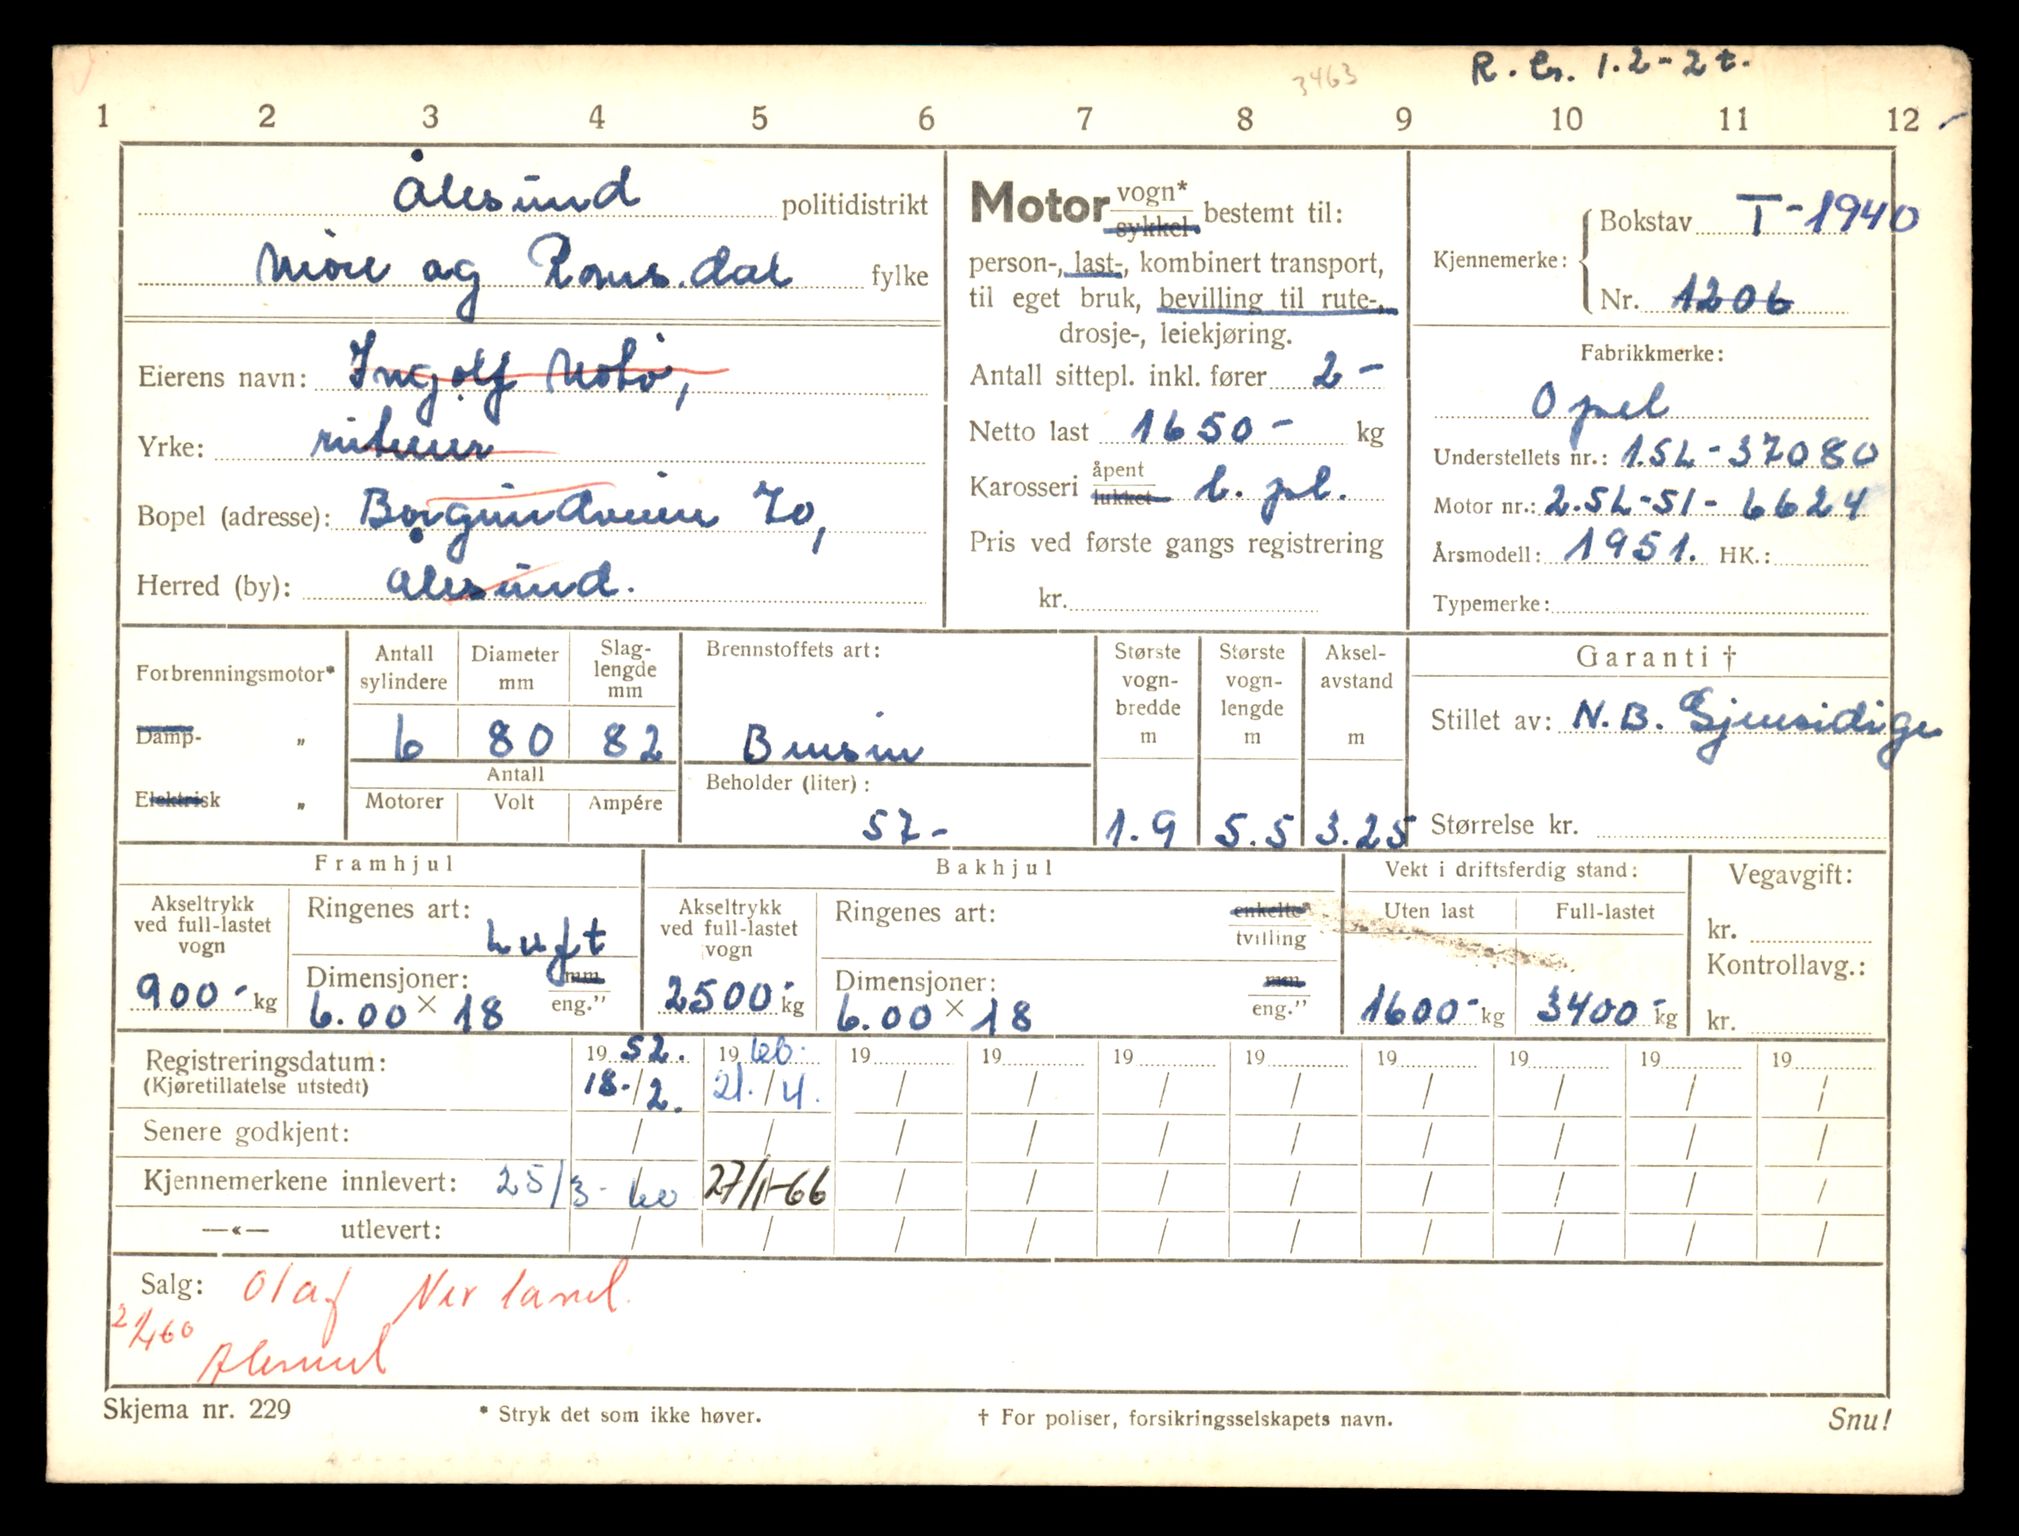 3463 R. Cr. 1.2-2t.
1 2 3 4 5 6 7 8 9 10 11 12
Ålesund politidistrikt
Møre og Romsdal fylke
Eierens navn: Ingolf Notø,
Yrke:
Bopel (adresse): Borgundveien 70,
Herred (by): Ålesund.
Motor vogn* sykkel. bestemt til:
person-, last-, kombinert transport,
til eget bruk, bevilling til rute-,
drosje-, leiekjøring.
Antall sittepl. inkl. fører 2-
Netto last 1650- kg
Karosseri åpent lukket l. pl.
Pris ved første gangs registrering
kr.
Kjennemerke: Bokstav T-1940
Nr. 1206
Fabrikkmerke:
Opel
Understellets nr.: 1.5L-37080
Motor nr.: 2.5L-51-6624
Årsmodell: 1951. HK.:
Typemerke:
Forbrenningsmotor*
Damp- "
Elektrisk "
Antall sylindere Diameter mm Slag-lengde mm
6 80 82
Antall
Motorer Volt Ampére
Brennstoffets art:
Bensin
Beholder (liter):
57-
Største vogn-bredde m
1.9
Største vogn-lengde m
5.5
Aksel-avstand m
3.25
Garanti †
Stillet av: N.B. Gjensidige
Størrelse kr.
Framhjul
Akseltrykk ved full-lastet vogn
900- kg
Ringenes art: Luft
Dimensjoner: mm
6.00 × 18 eng."
Bakhjul
Akseltrykk ved full-lastet vogn
2500- kg
Ringenes art: enkelte* tvilling
Dimensjoner: mm
6.00 × 18 eng."
Vekt i driftsferdig stand:
Uten last Full-lastet
1600- kg 3400- kg
Vegavgift:
kr.
Kontrollavg.:
kr.
Registreringsdatum: 1952. 1960. 19 19 19 19 19 19 19 19
(Kjøretillatelse utstedt) 18./2. 21./4. / / / / / / / /
Senere godkjent: / / / / / / / / / /
Kjennemerkene innlevert: 25/3-60 27/11-66 / / / / / / / /
—«— utlevert: / / / / / / / / / /
Salg: Olaf Nerland.
2/4 60
Ålesund
Skjema nr. 229 * Stryk det som ikke høver. † For poliser, forsikringsselskapets navn. Snu!